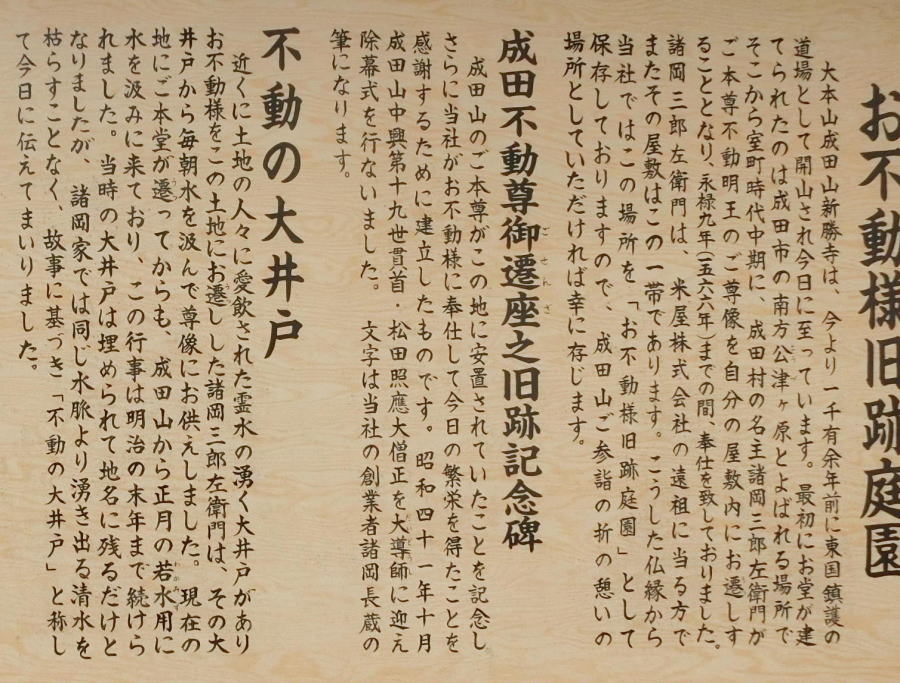 お不動様旧跡庭園
大本山成田山新勝寺は、今より一千有余年前に東国鎮護の
道場として開山され今日に至っています。最初にお堂が建
てられたのは成田市の南方公津ヶ原とよばれる場所で
そこから室町時代中期に、成田村の名主諸岡三郎左衛門が
ご本尊不動明王のご尊像を自分の屋敷内にお遷しす
ることとなり、永禄九年(一五六六年)までの間、奉仕を致しておりました。
諸岡三郎左衛門は、米屋株式会社の遠祖に当る方で
またその屋敷はこの一帯であります。こうした仏縁から
当社ではこの場所を「お不動様旧跡庭園」として
保存しておりますので、成田山ご参詣の折の憩いの
場所としていただければ幸に存じます。
成田不動尊御遷座之旧跡記念碑
成田山のご本尊がこの地に安置されていたことを記念し
さらに当社がお不動様に奉仕して今日の繁栄を得たことを
感謝するために建立したものです。昭和四十一年十月
成田山中興第十九世貫首・松田照應大僧正を大導師に迎え
除幕式を行ないました。 文字は当社の創業者諸岡長蔵の
筆になります。
不動の大井戸
近くに土地の人々に愛飲された霊水の湧く大井戸があり
お不動様をこの土地にお遷しした諸岡三郎左衛門は、その大
井戸から毎朝水を汲んで尊像にお供えしました。現在の
地にご本堂が遷ってからも、成田山から正月の若水用に
水を汲みに来ており、この行事は明治の末年まで続けら
れました。当時の大井戸は埋められて地名に残るだけと
なりましたが、諸岡家では同じ水脈より湧き出る清水を
枯らすことなく、故事に基づき「不動の大井戸」と称し
て今日に伝えてまいりました。